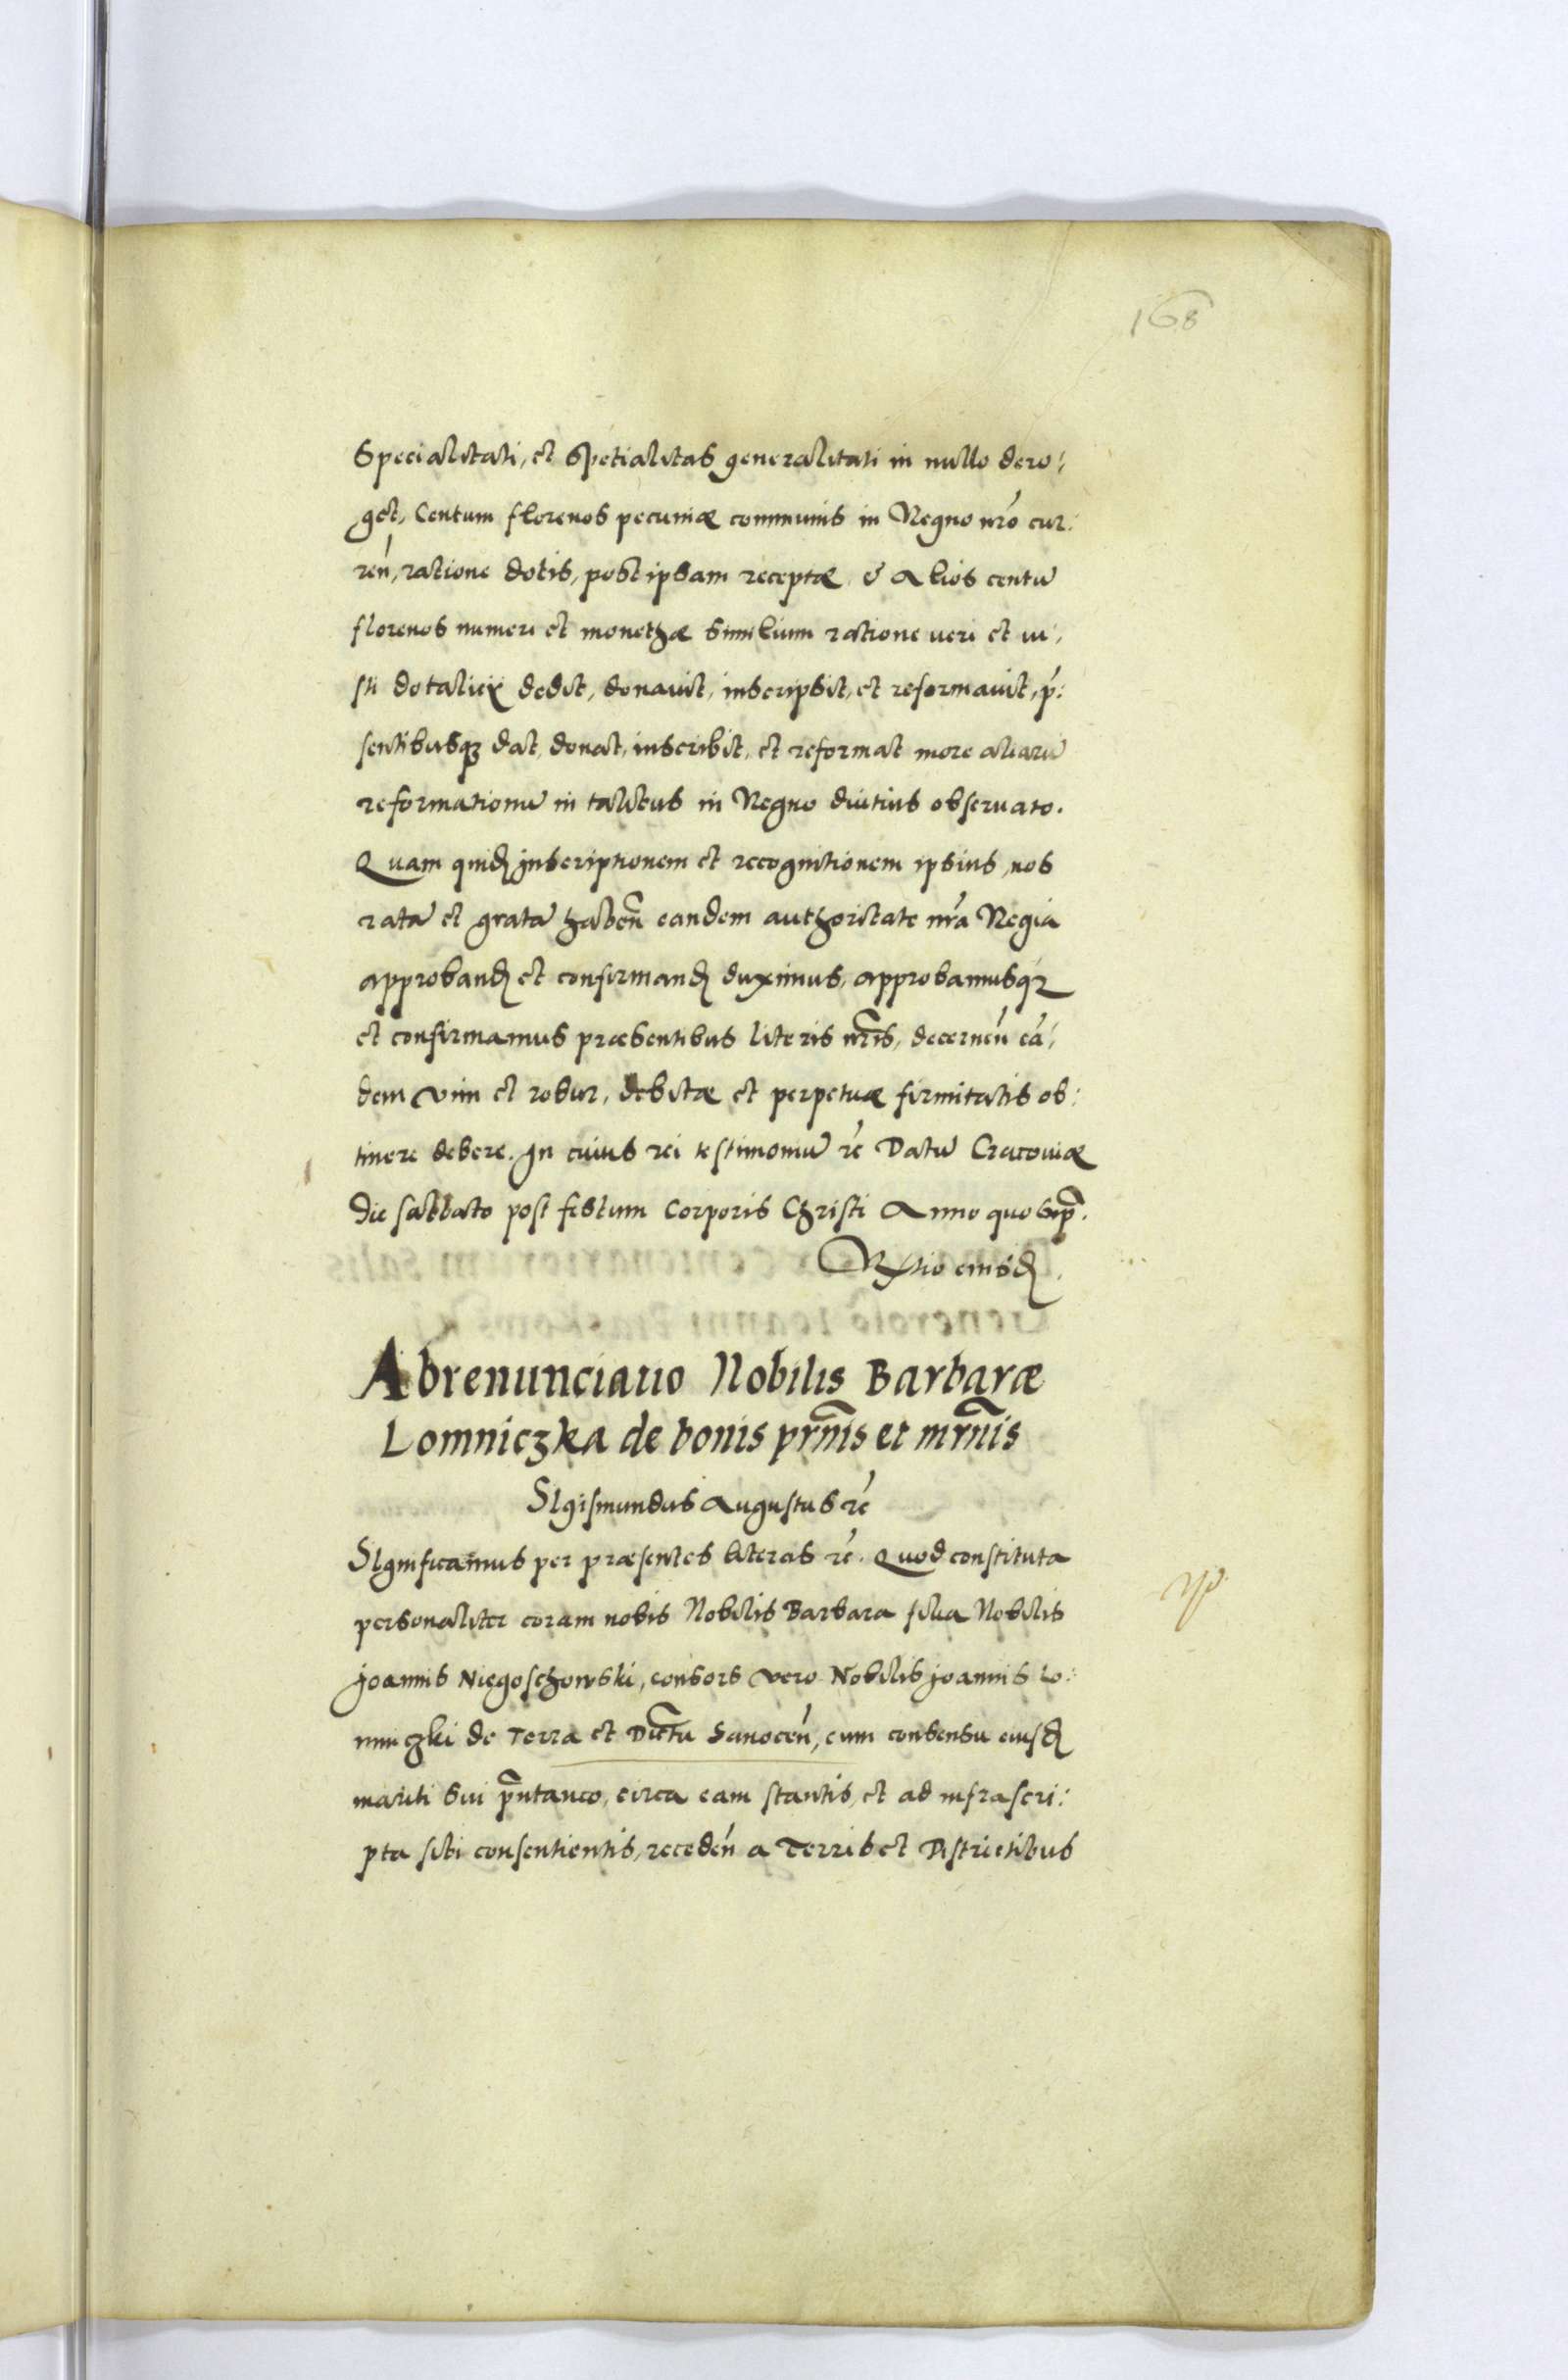 168
Specialitati, et Spetialitas generalitati in nullo dero:
get, Centum florenos pecuniæ communis in Regno nr̃o cur:
reñ, ratione dotis, post ipsam receptæ & Alios centũ
florenos numeri et monethæ similium ratione veri et iu:
sti dotalicij dedit, donauit, inscripsit, et reformauit, p̃:
sentibusq; dat, donat, inscribit, et reformat more aliarũ
reformationũ in talibus in Regno diutius obseruato.
Quam quid̃ inscriptionem et recognitionem ipsius, nos
ratã et gratã habeñ eandem authoritate nr̃a Regia
approband̃ et confirmand̃ duximus, approbamusq;
et confirmamus præsentibus literis nr̃is, decerneñ eã:
dem vim et robur, debitæ et perpetuæ firmitatis ob:
tinere debere. In cuius rei testimoniũ rc̃ Datũ Cracouiæ
die sabbato post festum Corporis Christi Anno quo sup̃.
R̃tio eiusd̃.
Abrenunciatio Nobilis Barbaræ
Lomniczka de bonis pr̃nis et mr̃nis
Sigismundus Augustus rc̃
Significamus per præsentes literas rc̃. Quod constituta
personaliter coram nobis Nobilis Barbara filia Nobilis
Joannis Niegoschowski, consors vero Nobilis Joannis Lo:
mniczki de Terra et Dic̃tu Sanoceñ, cum consensu eiusd̃
mariti sui p̃ntaneo, circa eam stantis, et ad infrascri:
pta sibi consentientis, recedeñ a Terris et Districtibus